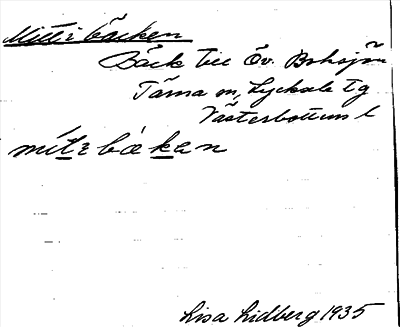 Mittibäcken
Bäck till Öv. Boksjön
Tärna sn, Lycksele tg
Västerbottens l
mít̲ɩ bä́k̲en
Lisa Lidberg 1935